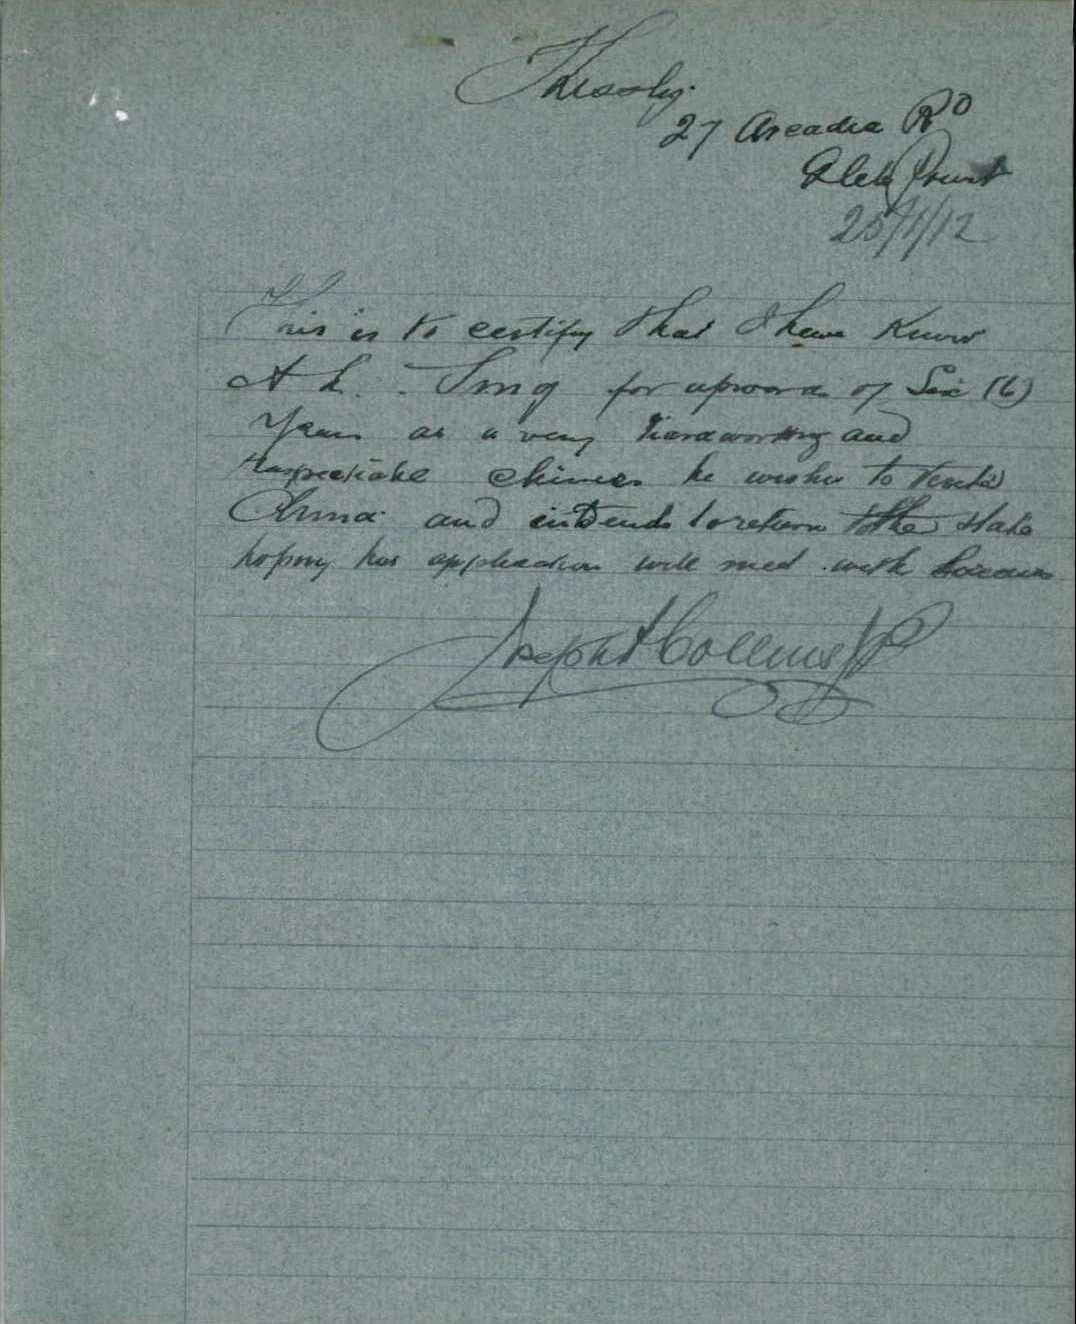 27 Arcadia Rd
Glebe Point
25/1/12
This is to certify that I have Known
Ah. Sing for upwards of Six (6)
Years as a very hardworking and
respectable chinese he wishes to visit
China and intends to return to the State
hoping his application will meet with
Joseph H Collins JP